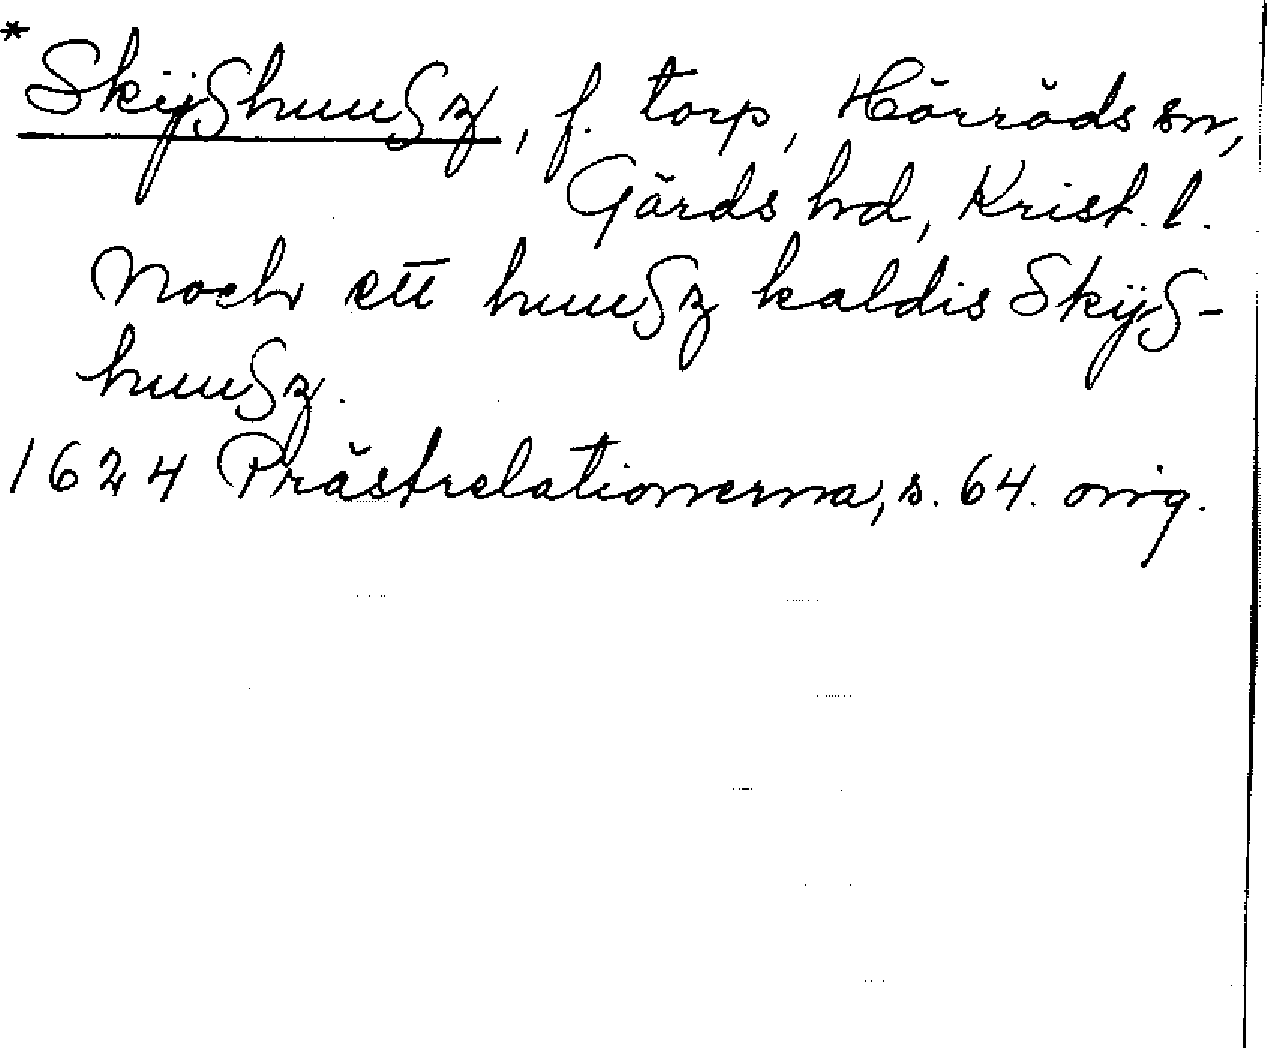 * Skÿßhuußz, f. torp, Hörröds sn,
Gärds hd, Krist. l.
Noch ett huußz kaldis Skÿß-
huußz.
1624 Prästrelationerna, s. 64. orig.